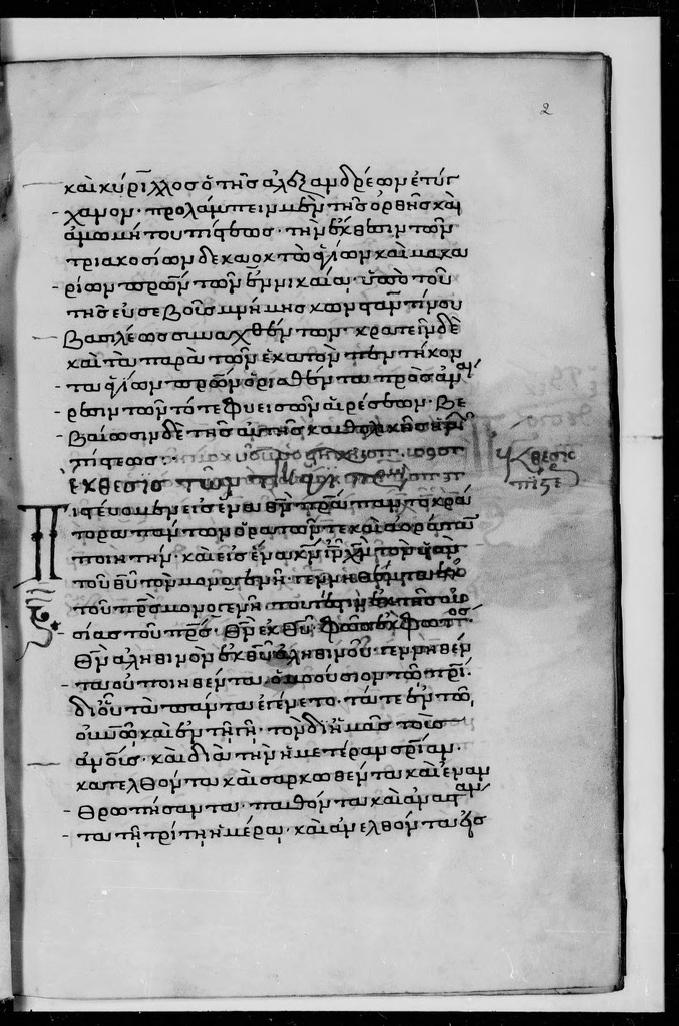 2
καὶ κύριλλος ὁ τῆς ἀλεξανδρέων ἐτύγ
χανον· προλάμπειν μὲν τῆς ὀρθῆς καὶ
ἀμωμήτου πίστεως· τὴν ἔκθεσιν τῶν
τριακοσίων δεκαοκτὼ ἁγίων καὶ μακα
ρίων πρῶν τῶν ἐν νικαία· ὑπὸ τοῦ
τῆς εὐσεβοῦς μνήμης κωνσταντίνου
βασιλέως συναχθέντων· κρατεῖν δὲ
καὶ τὰ παρὰ τῶν ἑκατὸν πεντήκον
τα ἁγίων πρων ὁρισθέντα πρὸς ἀναί
ρεσιν τῶν τότε φυεισῶν αἱρέσεων· βε
βαίωσιν δὲ τῆς αὐτῆς καθολικῆς
πίστεως:
ἔκθεσις τῶν
Πιστεύομεν εἰς ἕνα θν πρα παντοκρά
τορα πάντων ὁρατῶν τε καὶ ἀοράτων
ποιητήν· καὶ εἰς ἕνα κν ιν χν τὸν υν
τοῦ θυ τὸν μονογενῆ· γεννηθέντα ἐκ
τοῦ πρς μονογενῆ· τουτέστιν ἐκ τῆς οὐ
σίας τοῦ πρς· θν ἐκ θυ φῶς ἐκ φωτος·
θν ἀληθινὸν ἐκ θυ ἀληθινοῦ· γεννηθέν
τα οὐ ποιηθέντα ὁμοούσιον τῶ πρι·
δι οὗ τὰ πάντα ἐγένετο· τά τε ἐν τῶ
οὐνῶ καὶ ἐν τῆ γῆ· τὸν δι ἡμᾶς τοὺς
ανους· καὶ διὰ τὴν ἡμετέραν σριαν·
κατελθόντα καὶ σαρκωθέντα καὶ ἐναν
θρωπήσαντα· παθόντα καὶ ἀναστάν
τα τῆ τρίτη ἡμέρα· καὶ ἀνελθόντα εἰς